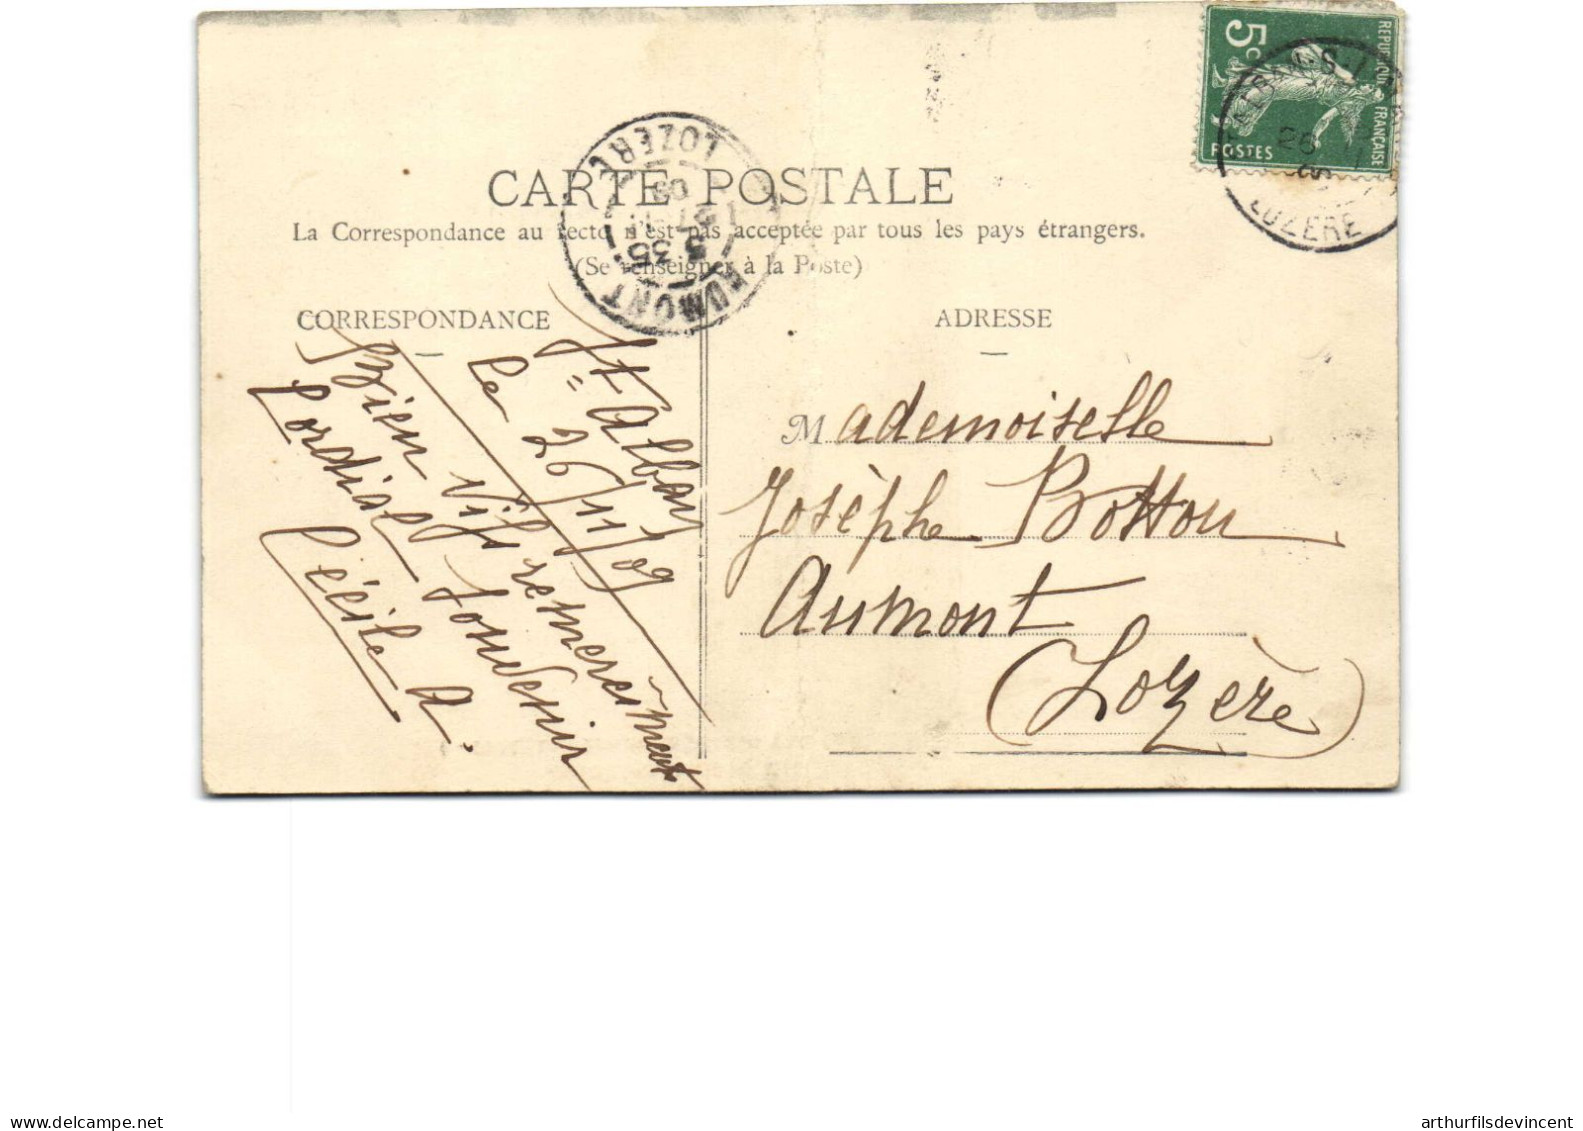 CARTE POSTALE
La Correspondance au recto n'est pas acceptée par tous les pays étrangers.
(Se renseigner à la Poste)
CORRESPONDANCE
ADRESSE
5c
REPUBLIQUE FRANÇAISE
POSTES
LOZERE
AUMONT
LOZERE
St Alban
le 26/11/09
Bien Vifs remerciements
Cordial Souvenir
Cécile A.
Mademoiselle
Josèphe Botton
Aumont
(Lozère)
www.delcampe.net
arthurfilsdevincent